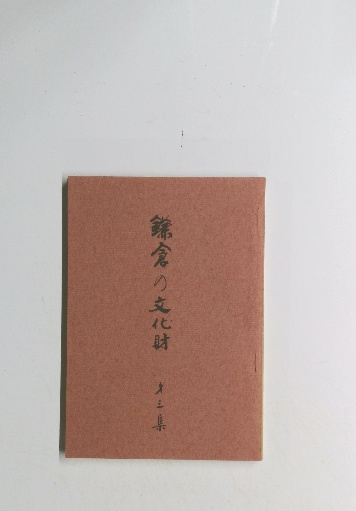 鎌倉の文化財
才三集